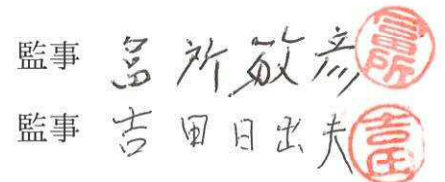 監事 冨所敏彦 冨所
監事 吉田日出夫 吉田